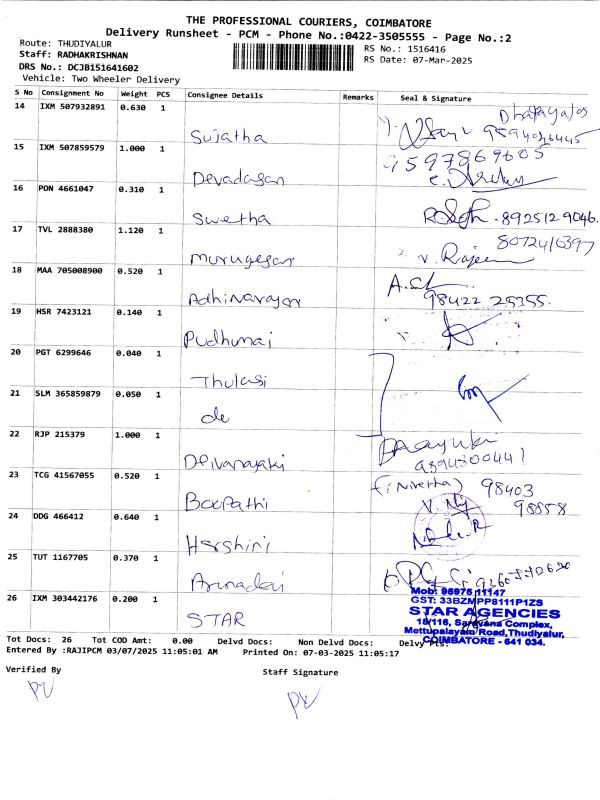 THE PROFESSIONAL COURIERS, COIMBATORE
Delivery Runsheet - PCM - Phone No.:0422-3505555 - Page No.:2
Route: THUDIYALUR
RS No.: 1516416
Staff: RADHAKRISHNAN
RS Date: 07-Mar-2025
DRS No.: DCJB151641602
Vehicle: Two Wheeler Delivery
S No Consignment No Weight PCS Consignee Details Remarks Seal & Signature
14 IXM 507932891 0.630 1
Sujatha
15 IXM 507859579 1.000 1
Devadasan
16 PON 4661047 0.310 1
Swetha 8925129046
17 TVL 2888380 1.120 1
Murugesan V. Rajeem
18 MAA 705008900 0.520 1
Adhinarayan 98422 25355
19 HSR 7423121 0.140 1
Pudhumai
20 PGT 6299646 0.040 1
Thulasi
21 SLM 365859879 0.050 1
do
22 RJP 215379 1.000 1
Deivanayaki
23 TCG 41567055 0.520 1 (Nivetha) 98403
Boopathi 98858
24 DDG 466412 0.640 1
Harshini
25 TUT 1167705 0.370 1
Arunadevi
26 IXM 303442176 0.200 1
STAR
Mob: 95975 11147
GST: 33BZMPP8111P1ZS
STAR AGENCIES
18/116, Saravana Complex,
Mettupalayam Road, Thudiyalur,
COIMBATORE - 641 034.
Tot Docs: 26 Tot COD Amt: 0.00 Delvd Docs: Non Delvd Docs: Delvy Pts:
Entered By :RAJIPCM 03/07/2025 11:05:01 AM Printed On: 07-03-2025 11:05:17
Verified By Staff Signature